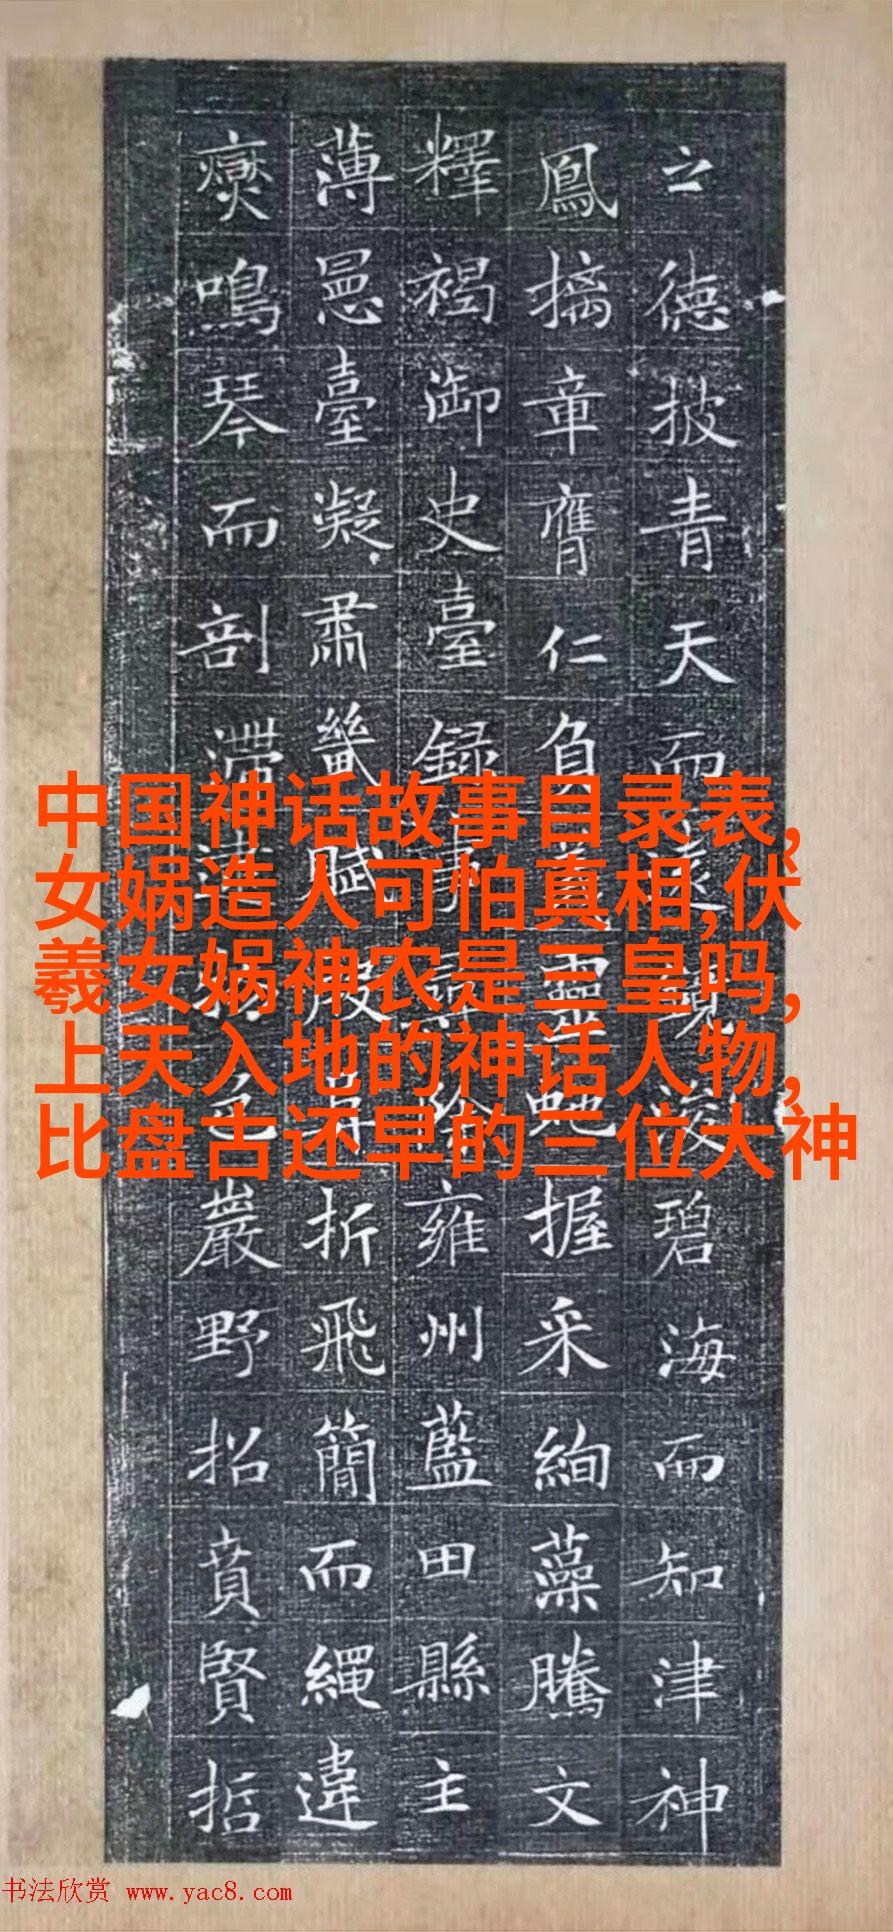 之德披青天而遠浚碧海而知津神
鳳摛章膺仁負義靈虵握采絢藻騰文
釋褐御史臺録事尋除雍州藍田縣主
薄臺凝肅賦殿折飛簡而繩違
鳴琴而剖滯色巖野招賁賢哲
中国神话故事目录表,
女娲造人可怕真相,伏
羲女娲神农是三皇吗,
上天入地的神话人物,
比盘古还早的三位大神
书法欣赏 www.yac8.com